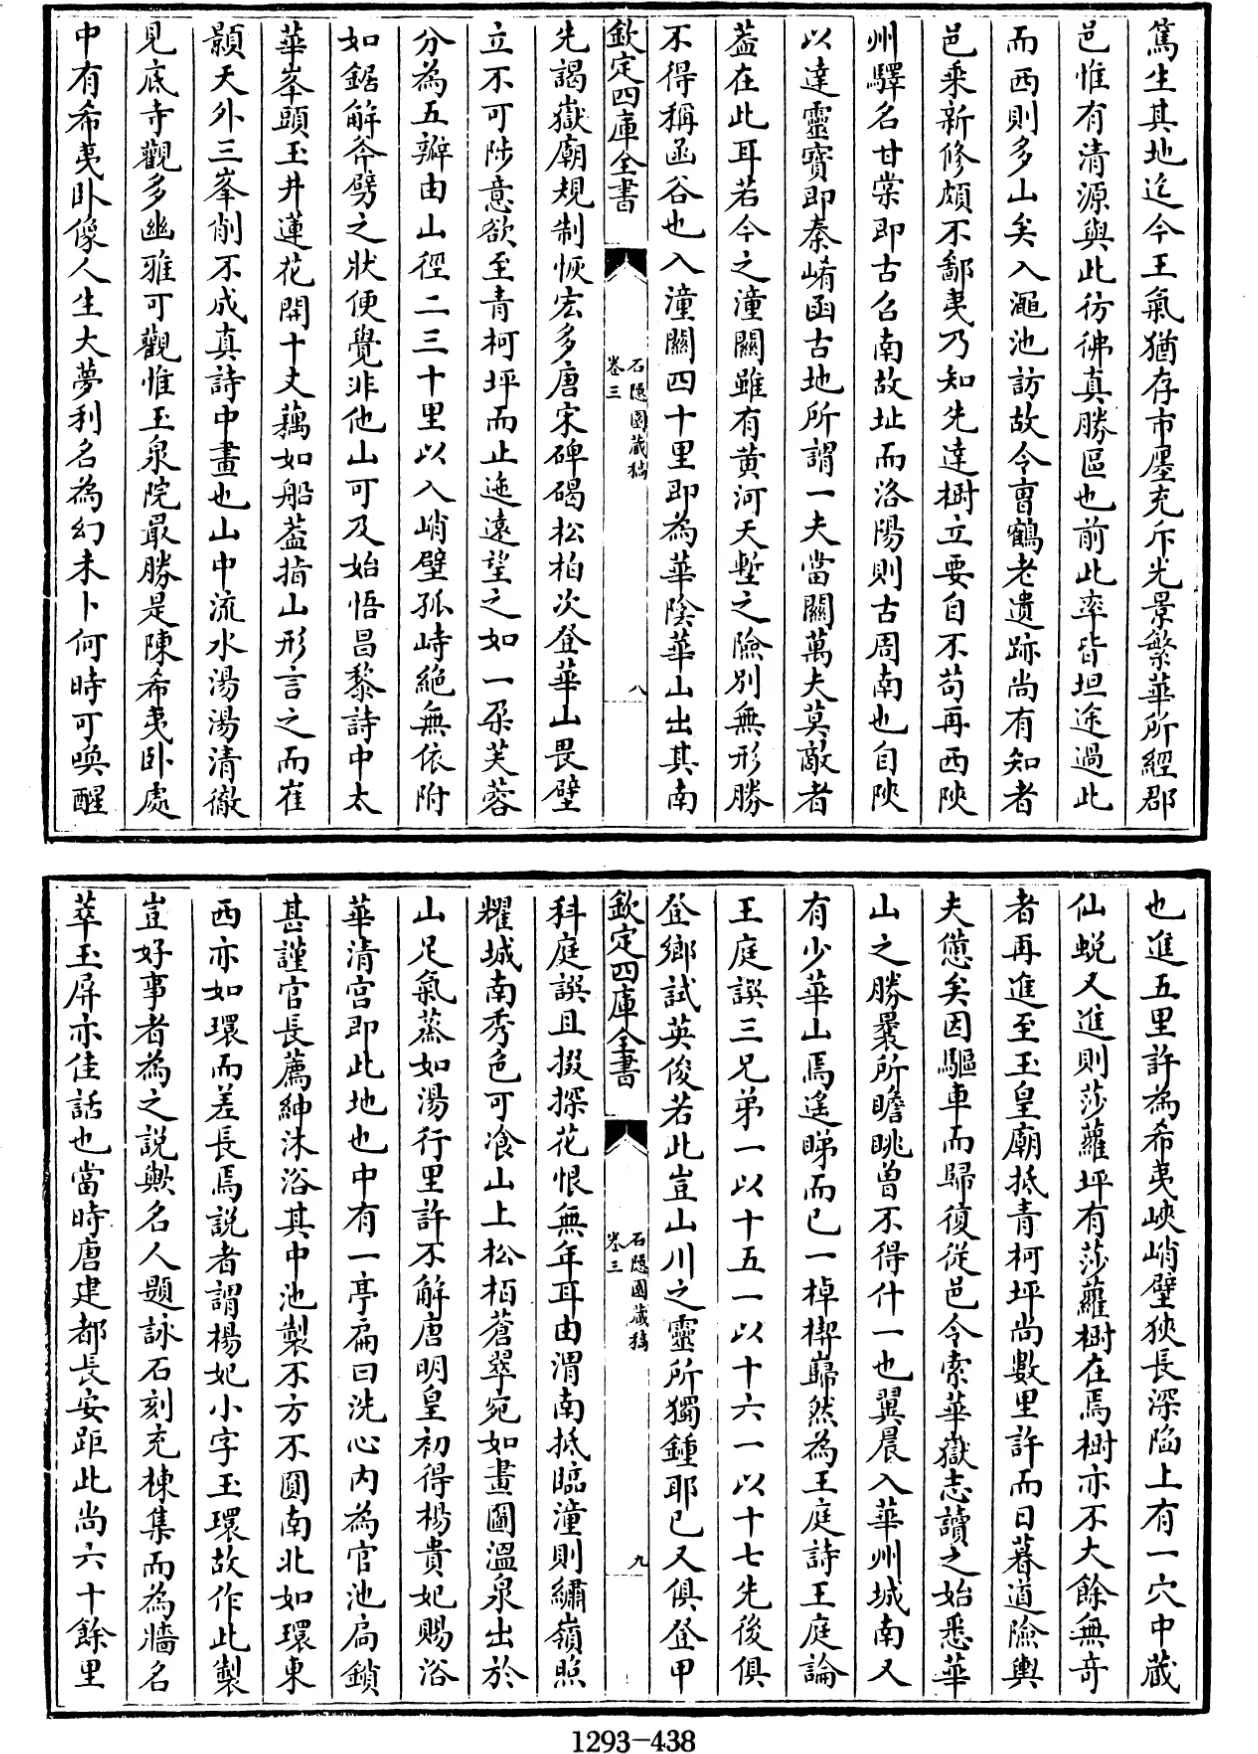 篤生其地迄今王氣猶存市廛充斥光景繁華所經郡
邑惟有清源與此彷彿真勝區也前此率皆坦途過此
而西則多山矣入澠池訪故令曺鶴老遺跡尚有知者
邑乘新修頗不鄙夷乃知先達樹立要自不苟再西陜
州驛名甘棠即古召南故址而洛陽則古周南也自陜
以達靈寳即秦崤函古地所謂一夫當關萬夫莫敵者
葢在此耳若今之潼關雖有黄河天塹之險别無形勝
不得稱函谷也入潼關四十里即為華隂華山出其南
欽定四庫全書
石隱園藏稿
卷三
八
先謁嶽廟規制恢宏多唐宋碑碣松柏次登華山畏壁
立不可陟意欲至青柯坪而止迤遠望之如一朶芙蓉
分為五瓣由山徑二三十里以入峭壁孤峙絶無依附
如鋸解斧劈之狀便覺非他山可及始悟昌黎詩中太
華峯頭玉井蓮花開十丈藕如船葢指山形言之而崔
顥天外三峯削不成真詩中畫也山中流水湯湯清徹
見底寺觀多幽雅可觀惟玉泉院最勝是陳希夷卧處
中有希夷卧像人生大夢利名為幻未卜何時可喚醒
也進五里許為希夷峽峭壁狹長深陷上有一穴中蔵
仙蜕又進則莎蘿坪有莎蘿樹在焉樹亦不大餘無竒
者再進至玉皇廟抵青柯坪尚數里許而日暮道險輿
夫憊矣因驅車而歸復從邑令索華嶽志讀之始悉華
山之勝曩所瞻眺曽不得什一也翼晨入華州城南又
有少華山焉遙睇而已一棹楔巋然為王庭詩王庭論
王庭譔三兄弟一以十五一以十六一以十七先後俱
登鄉試英俊若此豈山川之靈所獨鍾耶已又俱登甲
欽定四庫全書
石隱園藏稿
卷三
九
科庭譔且掇探花恨無年耳由渭南抵臨潼則繡嶺照
耀城南秀色可飡山上松栢蒼翠宛如畫圖溫泉出於
山足氣蒸如湯行里許不解唐明皇初得楊貴妃賜浴
華清宫即此地也中有一亭扁曰洗心内為官池扃鎖
甚謹官長薦紳沐浴其中池製不方不圓南北如環東
西亦如環而差長焉説者謂楊妃小字玉環故作此製
豈好事者為之説歟名人題詠石刻充棟集而為牆名
萃玉屏亦佳話也當時唐建都長安距此尚六十餘里
1293-438